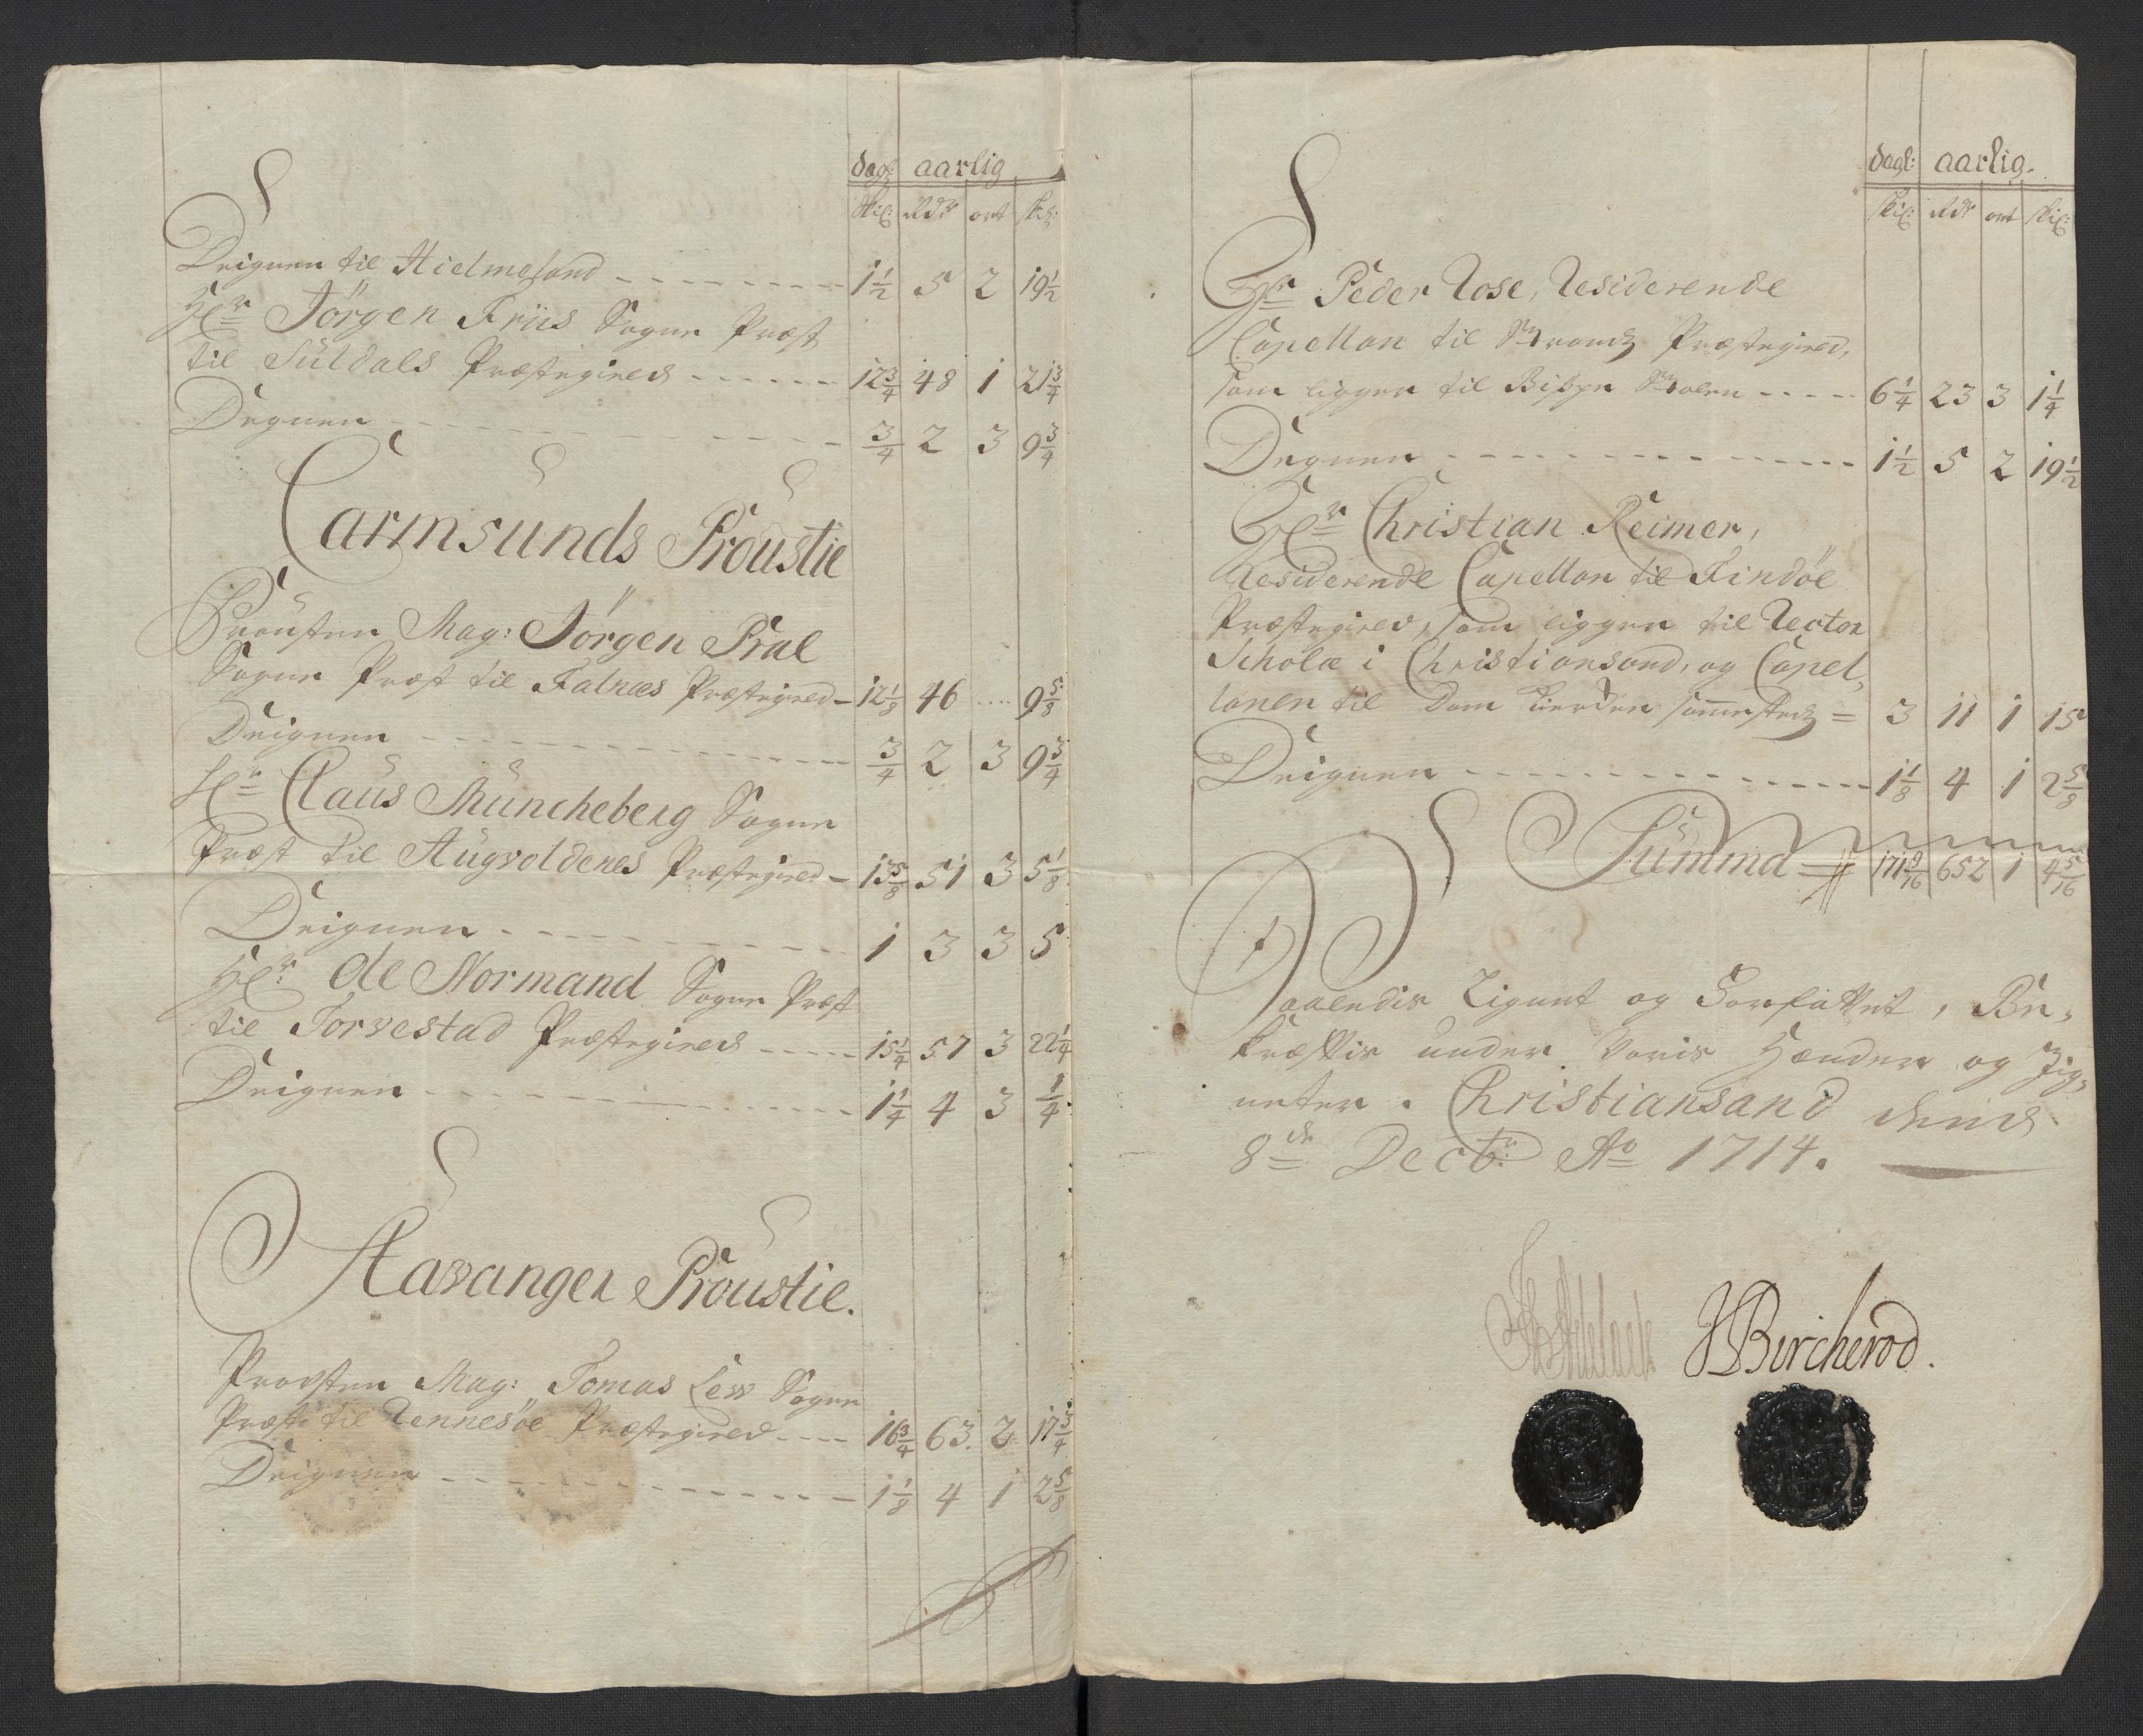 dagl: aarlig
skil: Rdr ort skil:
Deignen til Hielmeland - - - 1 1/2 5 2 19 1/2
Hr Jörgen Friis Sogne Præst
til Suldals Præstegield - - - 12 3/4 48 1 21 3/4
Degnen - - - 3/4 2 3 9 3/4
Carmsunds Proustie
Prousten Mag: Jörgen Pral
Sogne Præst til Falnæs Præstegield - 12 1/8 46 .... 9 5/8
Deignen - - - 3/4 2 3 9 3/4
Hr Claus Müncheberg Sogne
Præst til Augvoldenes Præstegield - 13 5/8 51 3 5 1/8
Deignen - - - 1 3 3 5
Hr: Ole Normand Sogne Præst
til Torvestad Præstegield - - - 15 1/4 57 3 22 1/4
Deignen - - - 1 1/4 4 3 1/4
Stavanger Proustie.
Provsten Mag: Tomas Sogne
Præst til Rennesöe Præstegield - - - 16 3/4 63. 2 17 3/4
Deignen - - - 1 1/8 4 1 2 5/8
dagl: aarlig.
skil: Rdr ort skil:
Hr Peder Rose, Residerende
Capellan til Strands Præstegield,
som ligger til Bispe Stolen - - - 6 1/4 23 3 1 1/4
Degnen - - - 1 1/2 5 2 19 1/2
Hr Christian Reimer,
Residerende Capellan til Findöe
Præstegield, som ligger til Rector
Scholæ i Christiansand, og Capel,
lanen til Dom Kierken sammesteds = 3 11 1 15
Deignen - - - 1 1/8 4 1 2 5/8
Summa = 171 9/16 652 1 4 5/16
Lignet og Forfattet, Be,
kræftis under Voris Hænder og Zig,
neter. Christiansand dend
8de Decbr: Ao 1714.
JBircherod.